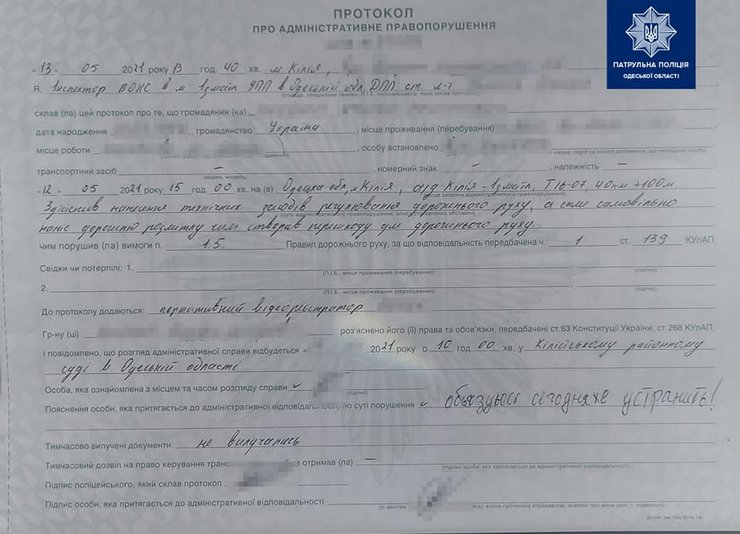 ПРОТОКОЛ
ПРО АДМІНІСТРАТИВНЕ ПРАВОПОРУШЕННЯ
ПАТРУЛЬНА ПОЛІЦІЯ
ОДЕСЬКОЇ ОБЛАСТІ
"13" 05 2021 року 13 год. 40 хв. м. Кілія,
Я, Інспектор в м. Ізмаїл УПП в Одеській обл. ДПП ст. л-т
склав (ла) цей протокол про те, що громадянин (ка)
дата народження , громадянство Україна , місце проживання (перебування)
місце роботи , особу встановлено
транспортний засіб – номерний знак – , належність –
"12" 05 2021 15 год. 00 хв. на (в) Одеська обл., м. Кілія, а/д Кілія - Ізмаїл, Т16-07, 40км +100м
Здійснив нанесення технічних засобів регулювання дорожнього руху, а саме самовільно
наніс дорожню розмітку чим створив перешкоду для дорожнього руху.
чим порушив (ла) вимоги п. 1.5. Правил дорожнього руху, за що відповідальність передбачена ч. 1 ст. 139 КУпАП.
Свідки чи потерпілі: 1.
(П.І.Б., місце проживання (перебування)) (підпис)
2.
(П.І.Б., місце проживання (перебування)) (підпис)
До протоколу додаються: портативний відеореєстратор
Гр-ну (ці) роз'яснено його (її) права та обов'язки, передбачені ст.63 Конституції України, ст.268 КУпАП,
і повідомлено, що розгляд адміністративної справи відбудеться 2021 року о 10 год. 00 хв. у Кілійському районному
суді в Одеській області
Особа, яка ознайомлена з місцем та часом розгляду справи
(підпис)
Пояснення особи, яка притягається до адміністративної відповідальності, по суті порушення обязуюсь сегодня же устранить!
Тимчасово вилучені документи: не вилучались
Тимчасовий дозвіл на право керування отримав (ла) –
Підпис поліцейського, який склав протокол
Підпис особи, яка притягається до адміністративної відповідальності